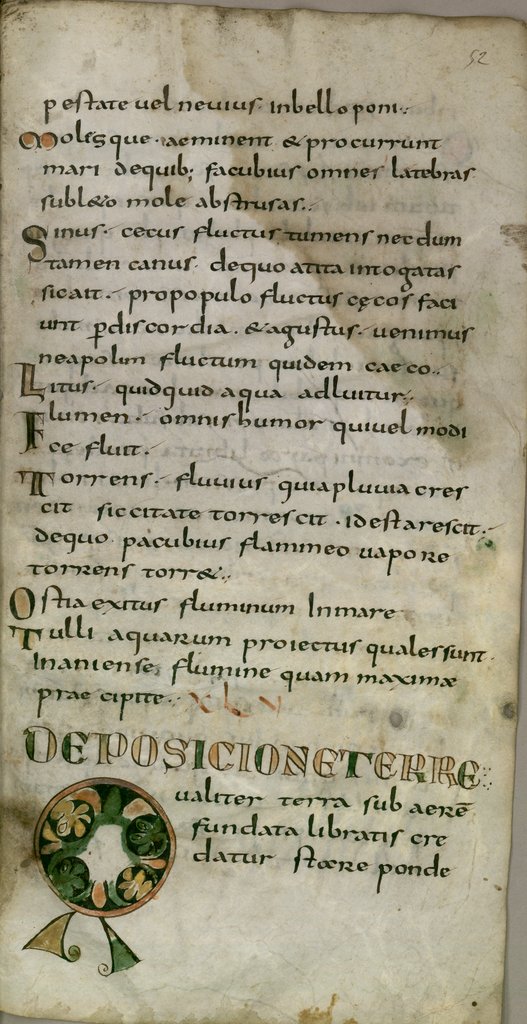 52
pestate uel nevius · in bello poni ·
Molesque · aeminent & procurrunt
mari dequib; facubius omnes latebras
subl&o mole abstrusas ·
Sinus · cecus fluctus tumens necdum
tamen canus · dequo atita intogatas
sicait · propopulo fluctus cęcos faci
unt ꝑdiscordia · & agustus · uenimus
neapolim fluctum quidem caeco ·
Litus · quidquid aqua adluitur ·
Flumen · omnis humor qui uel modi
ce fluit ·
Torrens · fluuius quia pluuia cres
cit siccitate torrescit · id est arescit ·
dequo pacubius flammeo uapore
torrens torr& ·
Ostia exitus fluminum In mare
Tulli aquarum proiectus quales sunt ·
In aniense flumine quam maximae
praecipite · XLV
DE POSICIONE TERRE
Qualiter terra sub aerē
fundata libratis cre
datur stare ponde